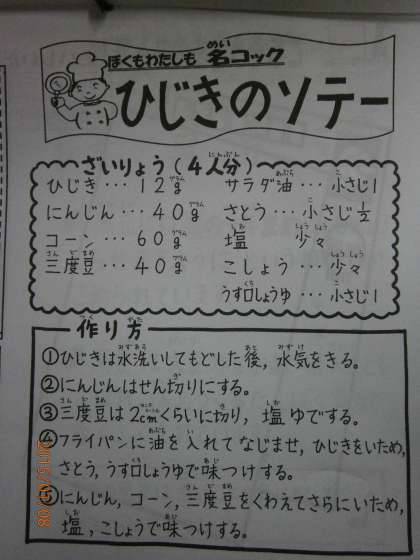 ぼくもわたしも 名コック
ひじきのソテー
ざいりょう(4人分)
ひじき…12g サラダ油…小さじ1
にんじん…40g さとう…小さじ1/2
コーン…60g 塩 少々
三度豆…40g こしょう…少々
うす口しょうゆ…小さじ1
作り方
①ひじきは水洗いしてもどした後,水気をきる。
②にんじんはせん切りにする。
③三度豆は2cmくらいに切り,塩ゆでする。
④フライパンに油を入れてなじませ,ひじきをいため,
さとう,うす口しょうゆで味つけする。
⑤にんじん,コーン,三度豆をくわえてさらにいため,
塩,こしょうで味つけする。